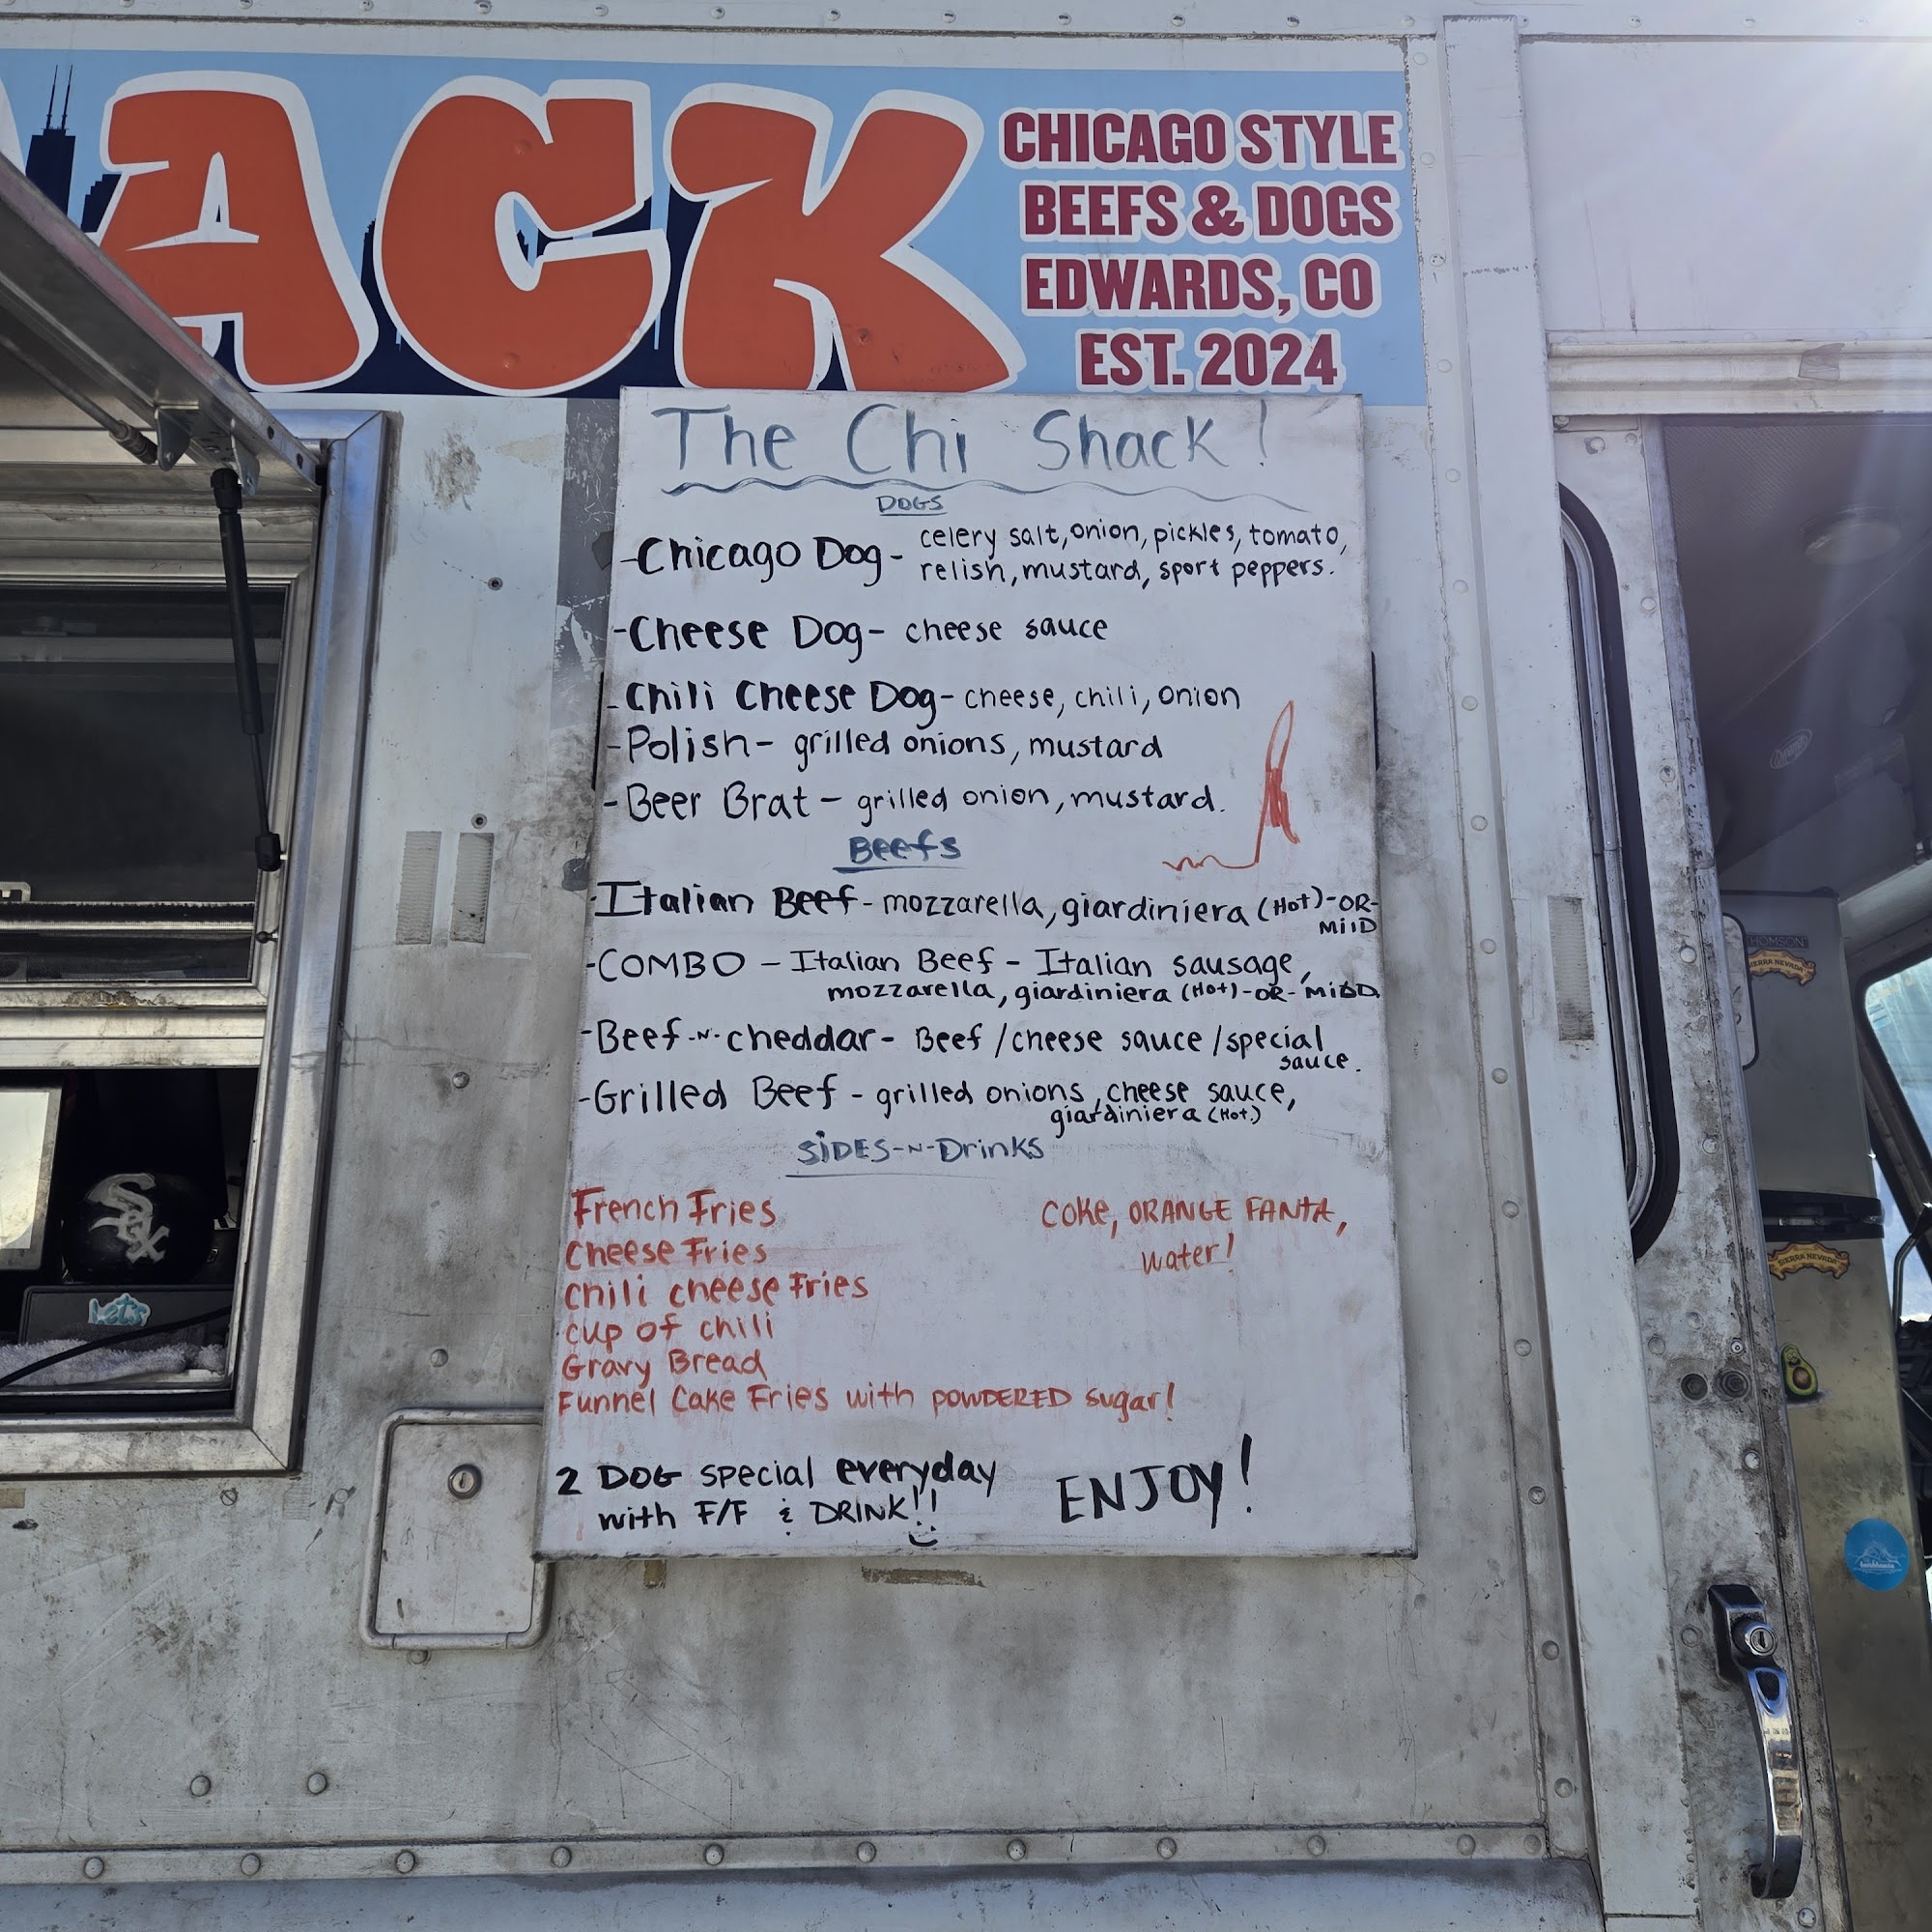 ACK
CHICAGO STYLE
BEEFS & DOGS
EDWARDS, CO
EST. 2024
The Chi Shack!
DOGS
-Chicago Dog- celery salt, onion, pickles, tomato,
relish, mustard, sport peppers.
-Cheese Dog- cheese sauce
-Chili Cheese Dog- cheese, chili, onion
-Polish- grilled onions, mustard
-Beer Brat- grilled onion, mustard.
Beefs
-Italian Beef- mozzarella, giardiniera (Hot)-OR-
MilD
-COMBO - Italian Beef - Italian sausage,
mozzarella, giardiniera (Hot)-OR-MilD.
-Beef-N-cheddar- Beef/cheese sauce/special
sauce.
-Grilled Beef- grilled onions, cheese sauce,
giardiniera (Hot)
SiDES-N-Drinks
French Fries
Cheese Fries
Chili cheese Fries
cup of chili
Gravy Bread
Funnel Cake Fries with POWDERED sugar!
Coke, ORANGE FANTA,
water!
2 DOG special everyday
with F/F & DRINK!!
ENJOY!
Sox
Lets
THOMSON
SIERRA NEVADA
SIERRA NEVADA